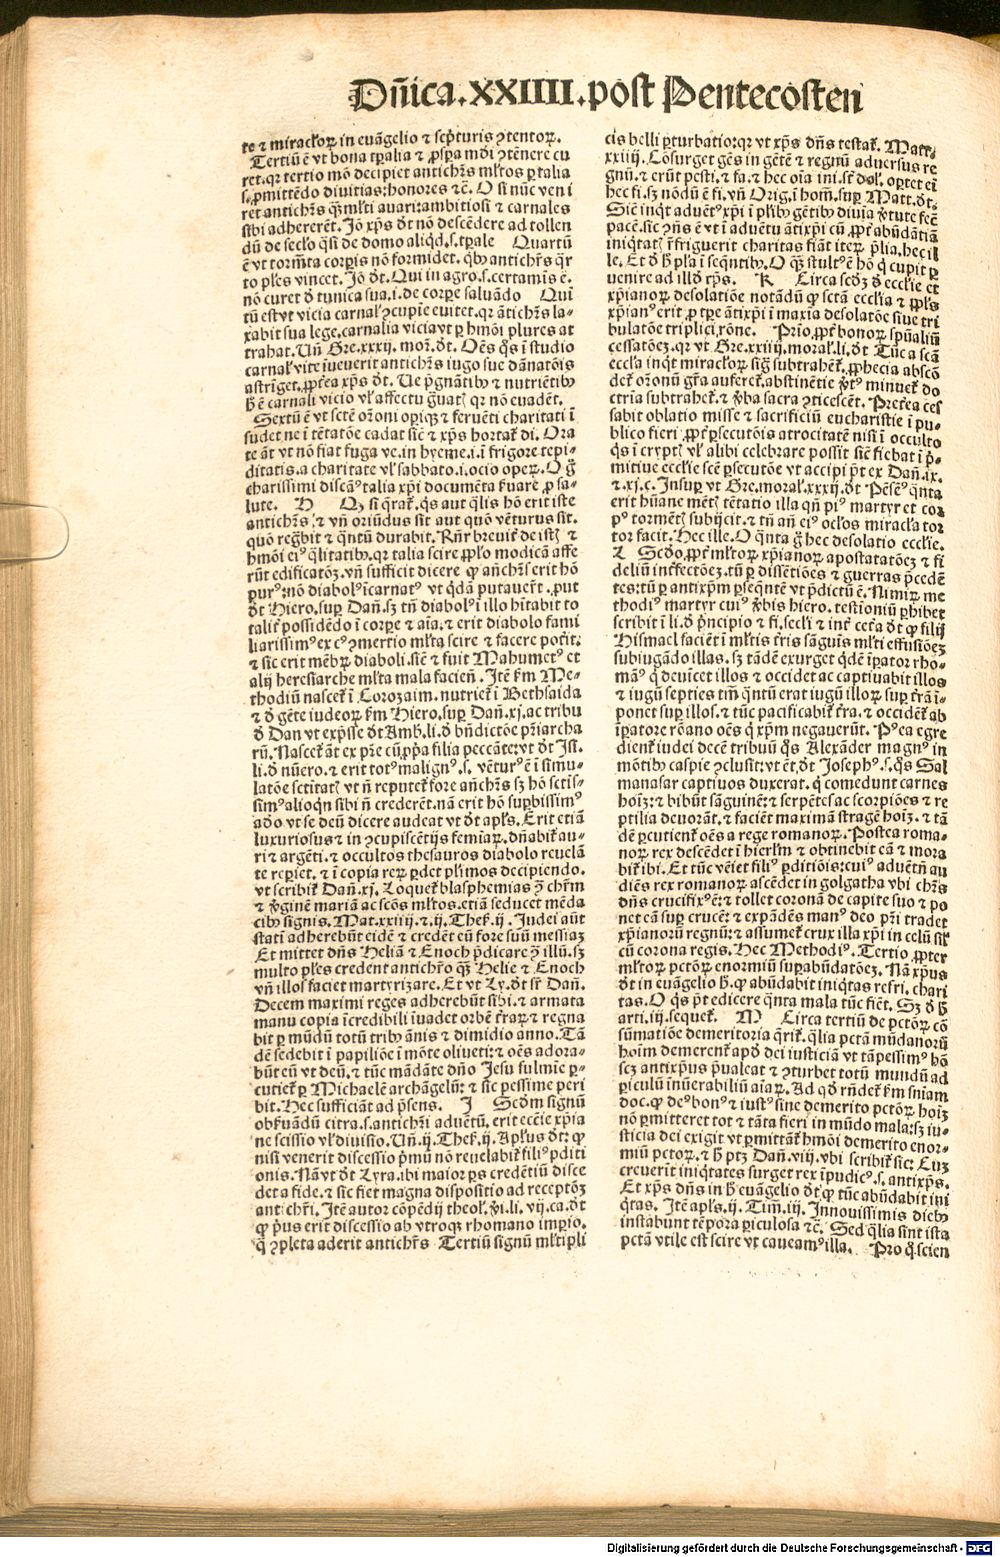 Dñica.XXIIII.post Pentecosten
te ⁊ miracłoꝝ in euãgelio ⁊ scp̃turis ꝯtentoꝝ.
Tertiũ ē vt bona tp̃alia ⁊ ꝓsp̃a mũdi ꝯtēnere cu
ret.qꝛ tertio mõ decipiet antichr̃s ml̃tos ꝑ talia
s.ꝓmittẽdo diuitias:honores ⁊c̃. O si nũc veni
ret antichr̃s q̃ꝫ ml̃ti auari:ambitiosi ⁊ carnales
sibi adhererẽt. Jõ xp̃s ðt nõ descẽdere ad tollen
dũ de secło q̃si de domo aliqd̃.s.tp̃ale    Quartũ
ē vt tormẽta corꝑis nõ formidet. qꝛ antichr̃s qꝛ
to pl̃es vincet. Jõ ðt. Qui in agro.s.certamĩs ē.
nõ curet ð tunica sua.i.de corꝑe saluãdo    Quĩ
tũ est vt vicia carnal̃ ꝯcupie euitet.qꝛ ãtichr̃s la-
xabit sua lege.carnalia vicia vt ꝑ hmõi plures at
trahat. Uñ Gre.xxxij. moꝛ.ðt. Oẽs q̃s ĩ studio
carnal̃ vite inuenerit antichr̃s iugo sue dãnatõis
astrĩget.ꝓpt̃ea xp̃s ðt. Ue p̃gnãtibꝰ ⁊ nutriẽtibꝰ
h̃ ē carnali vicio vl̃ affectu g̃uatꝭ qꝛ nõ euadẽt.
Sextũ ē vt sctẽ or̃oni oꝑiqꝫ ⁊ feruẽti charitati ĩ
sudet ne ĩ tẽtatõe cadat sic̃ ⁊ xp̃s hortat̃ di. Ora
te ãt vt nõ fiat fuga ṽr̃a.in hyeme.i.ĩ frigore tepi-
ditatis.a charitate vl̃ sabbato.i.ocio oper̃. O g̃
charissimi discãꝰ talia xp̃i documẽta ẜuare ꝓ sa-
lute.    H    Qꝫ si q̃rat̃.q̃s aut q̃lis hõ erit iste
antichr̃s:⁊ vñ oriũdus sit aut quõ vẽturus sit.
quõ regñbit ⁊ q̃ntũ durabit. Rñr breuit̃ de istꝭ ⁊
hmõi eiꝰ q̃litatibꝰ.qꝛ talia scire ꝓpł̃o modicã affe
rũt edificatõꝫ.vñ sufficit dicere ꝙ añchr̃s erit hõ
purꝰ:nõ diabolꝰ ĩcarnatꝰ vt q̃dã putauer̃t.,put
ðt Hiero.suꝑ Dañ.sꝫ tñ diabolꝰ ĩ illo hĩtabit to
talit̃ possidẽdo ĩ corꝑe ⁊ aĩa.⁊ erit diabolo fami
liarissimꝰ ex cꝰ ꝯmertio ml̃ta scire ⁊ facere poter̃it:
⁊ sic erit mẽbꝝ diaboli.sic̃ ⁊ fuit Mahumetꝰ et
alij heresiarche ml̃ta mala facieñ. Jtẽ ẜm Me-
thodiũ nascet̃ ĩ Corozaim.nutriet̃ ĩ Bethsaida
⁊ ð gẽte iudeoꝝ ẜm Hiero.suꝑ Dañ.xj.ac tribu
ð Dan vt exp̃sse ðt Amb.li.ð bñdictõe pr̃iarcha
rũ. Nascet̃ ãt ex pr̃e cũ ꝓp̃a filia peccãte:vt ðt Jsi.
li.ð nũero.⁊ erit totꝰ malignꝰ.s. vẽturꝰ ē ĩ simu-
latõe sctitatꝭ vt ñ reputet̃ fore añchr̃s sꝫ hõ sctis-
simꝰ alioqñ sibi ñ crederẽt.nã erit hõ suꝑbissimꝰ
adeo vt se deũ dicere audeat vt ðt apłs. Erit etiã
luxuriosus ⁊ in ꝯcupiscẽtijs femiaꝝ.dñabit̃ au-
ri ⁊ argẽti.⁊ occultos thesauros diabolo reuelã
te reꝑiet.⁊ ĩ copia reꝝ ꝑdet pl̃imos decipiendo.
vt scribit̃ Dañ.xj. Loquet̃ blasphemias ꝯ̃ chr̃m
⁊ v̓ginẽ mariã ac sc̃os ml̃tos.etiã seducet mẽda
cibꝰ signis. Mat.xxiiij.⁊.ij. Thes̃.ij. Judei aũt
statĩ adherebũt eidẽ ⁊ credẽt eũ fore suũ messiaꝫ
Et mittet dñs Heliã ⁊ Enoch p̃dicare ꝯ̃ illũ.sꝫ
multo pl̃es credent antichr̃o q̃ꝫ Helie ⁊ Enoch
vñ illos faciet martyrizare. Et vt Ly.ðt sr̃ Dañ.
Decem maximi reges adherebũt sibi.⁊ armata
manu copia ĩcredibili ĩuadet orbẽ t̃raꝝ ⁊ regna
bit ꝑ mũdũ totũ tribꝰ ãnis ⁊ dimidio anno. Tã
dẽ sedebit ĩ papiliõe ĩ mõte oliueti:⁊ oẽs adora-
bũt eũ vt deũ.⁊ tũc mãdãte dño Jesu fulmie ꝑ-
cutiet̃ ꝑ Michaelẽ archãgelũ:⁊ sic pessime peri
bit. Hec sufficiãt ad p̃sens.    J    Scðm signũ
obẜuandũ citra.s.antichr̃i aduẽtũ.erit eccie xp̃ia
ne scissio vl̃ diuisio. Uñ.ij. Thes̃.ij. Apłus ðt:ꝙ
nisi venerit discessio p̃mũ nõ reuelabit̃ filiꝰ ꝑditi
onis. Nã vt ðt Lyra.ibi maior ꝑs credẽtiũ disce
det a fide.⁊ sic fiet magna dispositio ad receptõꝫ
antichr̃i. Jtẽ autor cõpẽdij theol̃.v̓i.li.vij.ca.ðt
ꝙ p̃us erit discessio ab vtroqꝫ rhomano imꝑio.
q̃ ꝯpleta aderit antichr̃s  Tertiũ signũ ml̃tipli
cis belli ꝑturbatio:qꝛ vt xp̃s dñs testat̃. Matt.
xxiiij. Cõsurget gẽs in gẽtẽ ⁊ regnũ aduersus re
gnũ.⁊ erũt pesti.⁊ fa.⁊ hec oĩa ini.sr̃ dol̃. oꝑtet eĩ
hec fi.sꝫ nõdũ ē fi. vñ Orig.ĩ hom̃.suꝑ Matt.ðt.
Sic̃ inqt̃ aduẽtꝰ xp̃i ĩ pl̃ibꝰ gẽtibꝰ diuĩa v̓tute fec̃
pacẽ.sic ꝯñs ē vt ĩ aduẽtu ãtixp̃i cũ ꝓpt̃ abũdãtiã
iniq̃tatꝭ ĩfriguerit charitas fiãt iteꝝ p̃lia.hec il
le. Et ð h̃ pl̃a ĩ seq̃ntibꝰ. O q̃ꝫ stultꝰ ē hõ q̃ cupit ꝑ
uenire ad illð tp̃s.    K    Circa scðꝫ ð eccl̃ie et
xp̃ianoꝝ desolatiõe notãdũ ꝙ sctã eccl̃ia ⁊ ꝓpl̃s
xp̃ianꝰ erit ꝓ tp̃e ãtixp̃i ĩ maxia desolatõe siue tri
bulatõe triplici rõne.    Prĩo ꝓpt̃ bonoꝝ spũaliũ
cessatõeꝫ.qꝛ vt Gre.xxiiij.moral̃.li.ðt Tũc a scã
eccl̃a inqt̃ miracłoꝝ sig̃ subtrahẽt̃.ꝓphecia abscõ
det̃ or̃onũ gr̃a auferet̃.abstinẽtie v̓tꝰ minuet̃ do
ctria subtrahet̃.⁊ v̓ba sacra ꝯticescẽt. Preterea ces
sabit oblatio misse ⁊ sacrificiũ eucharistie ĩ pu-
blico fieri ꝓpt̃ ꝑsecutõis atrocitatẽ nisi ĩ occulto
q̃s ĩ cryptꝭ vl̃ alibi celebrare possit sic̃ fiebat ĩ p̃-
mitiue eccl̃ie scẽ ꝑsecutõe vt accipi p̃t ex Dañ.ix.
⁊.xj.c. Jnsuꝑ vt Gre.moral̃.xxxij.ðt Pẽsemꝰ q̃nta
erit hũane mẽtꝭ tẽtatio illa qñ piꝰ martyr et cor
pꝰ tormẽtꝭ subijcit.⁊ tñ añ eiꝰ ocl̃os miracl̃a tor
tor facit. Hec ille. O q̃nta g̃ hec desolatio eccl̃ie.
L    Scðo ꝓpt̃ ml̃toꝝ xp̃ianoꝝ apostatatõeꝫ ⁊ fi
deliũ infectõeꝫ.tũ ꝑ dissẽtiões ⁊ guerras p̃cedẽ
tes:tũ ꝑ antixp̃m ꝑseq̃ntẽ vt p̃dictũ ē. Nimiꝝ me
thodiꝰ martyr cuiꝰ v̓bis hiero.testioniũ ꝑhibet
scribit ĩ li.ð p̃ncipio ⁊ fi.secl̃i ⁊ int̃ cet̃a ðt ꝙ filij
Hismael faciẽt ĩ ml̃tis t̃ris sãguĩs ml̃ti effusiõeꝫ
subiugãdo illas.sꝫ tãdẽ exurget q̃dẽ ĩꝑator rho-
manꝰ q̃ deuĩcet illos ⁊ occidet ac captiuabit illos
⁊ iugũ septies tm̃ q̃ntũ erat iugũ illoꝝ suꝑ t̃rã ĩ-
ponet suꝑ illos.⁊ tũc pacificabit̃ t̃ra.⁊ occidẽt̃ ab
ĩꝑatore roãno oẽs q̃ xp̃m negauerũt. Pꝰea egre
dient̃ iudei decẽ tribuũ q̃s Alexãder magnꝰ in
mõtibꝰ caspie ꝯclusit:vt ẽt ðt Josephꝰ.s.q̃s Sal
manasar captiuos duxerat.q̃ comedunt carnes
hoĩꝫ:⁊ bibũt sãguinẽ:⁊ serpẽtes ac scorpiões ⁊ re
ptilia deuorãt.⁊ faciẽt maximã stragẽ hoĩꝫ.⁊ tã
dẽ ꝑcutient̃ oẽs a rege romanoꝝ. Postea roma-
noꝝ rex descẽdet ĩ hierl̃m ⁊ obtinebit eã ⁊ mora
bit̃ ibi. Et tũc vẽiet filiꝰ ꝑditiõis:cuiꝰ aduẽtũ au
diẽs rex romanoꝝ ascẽdet in golgatha vbi chr̃s
dñs crucifixꝰ ē:⁊ tollet coronã de capite suo ⁊ po
net eã suꝑ crucẽ:⁊ expãdẽs manꝰ deo pr̃i tradet
xp̃ianorũ regnũ:⁊ assumet̃ crux illa xp̃i in celũ sil̃
cũ corona regis. Hec Methodiꝰ. Tertio ꝓpter
ml̃toꝝ pctõꝝ enormiũ suꝑabũdatõeꝫ. Nã xp̃us
ðt in euãgelio h̃.ꝙ abũdabit iniq̃tas refri.chari
tas. O q̃s p̃t edicere q̃nta mala tũc fiẽt. Sꝫ ð h̃
arti.iij.sequet̃.    M    Circa tertiũ de pctõꝝ cõ
sũmatiõe demeritoria q̃rit̃.q̃lia pctã mũdanorũ
hoĩm demerent̃ apð dei iusticiã vt tãpessimꝰ hõ
scꝫ antixp̃us p̃ualeat ⁊ ꝯturbet totũ mundũ ad
ꝑiculũ inũerabiliũ aĩaꝝ. Ad qð rñdet̃ ẜm sniam
doc.ꝙ deꝰ bonꝰ ⁊ iustꝰ sine demerito pctõꝝ hoĩꝫ
nõ ꝑmitteret tot ⁊ tãta fieri in mũdo mala:sꝫ iu-
sticia dei exigit vt ꝑmittãt̃ hmõi demerito enor-
miũ pctõꝝ.⁊ h̃ ptꝫ Dañ.viij.vbi scribit̃ sic: Cuꝫ
creuerĩt iniq̃tates surget rex ĩpudicꝰ.s.antixp̃s.
Et xp̃s dñs in h̃ euãgelio ðt ꝙ tũc abũdabit ini
q̃tas. Jtẽ apl̃s.ij. Tim̃.iij. Jnnouissimis diebꝰ
instabunt tẽpora ꝑiculosa ⁊c̃. Sed q̃lia sint ista
pctã vtile est scire vt caueamꝰ illa.    Pro q̃ scien
Digitalisierung gefördert durch die Deutsche Forschungsgemeinschaft - DFG